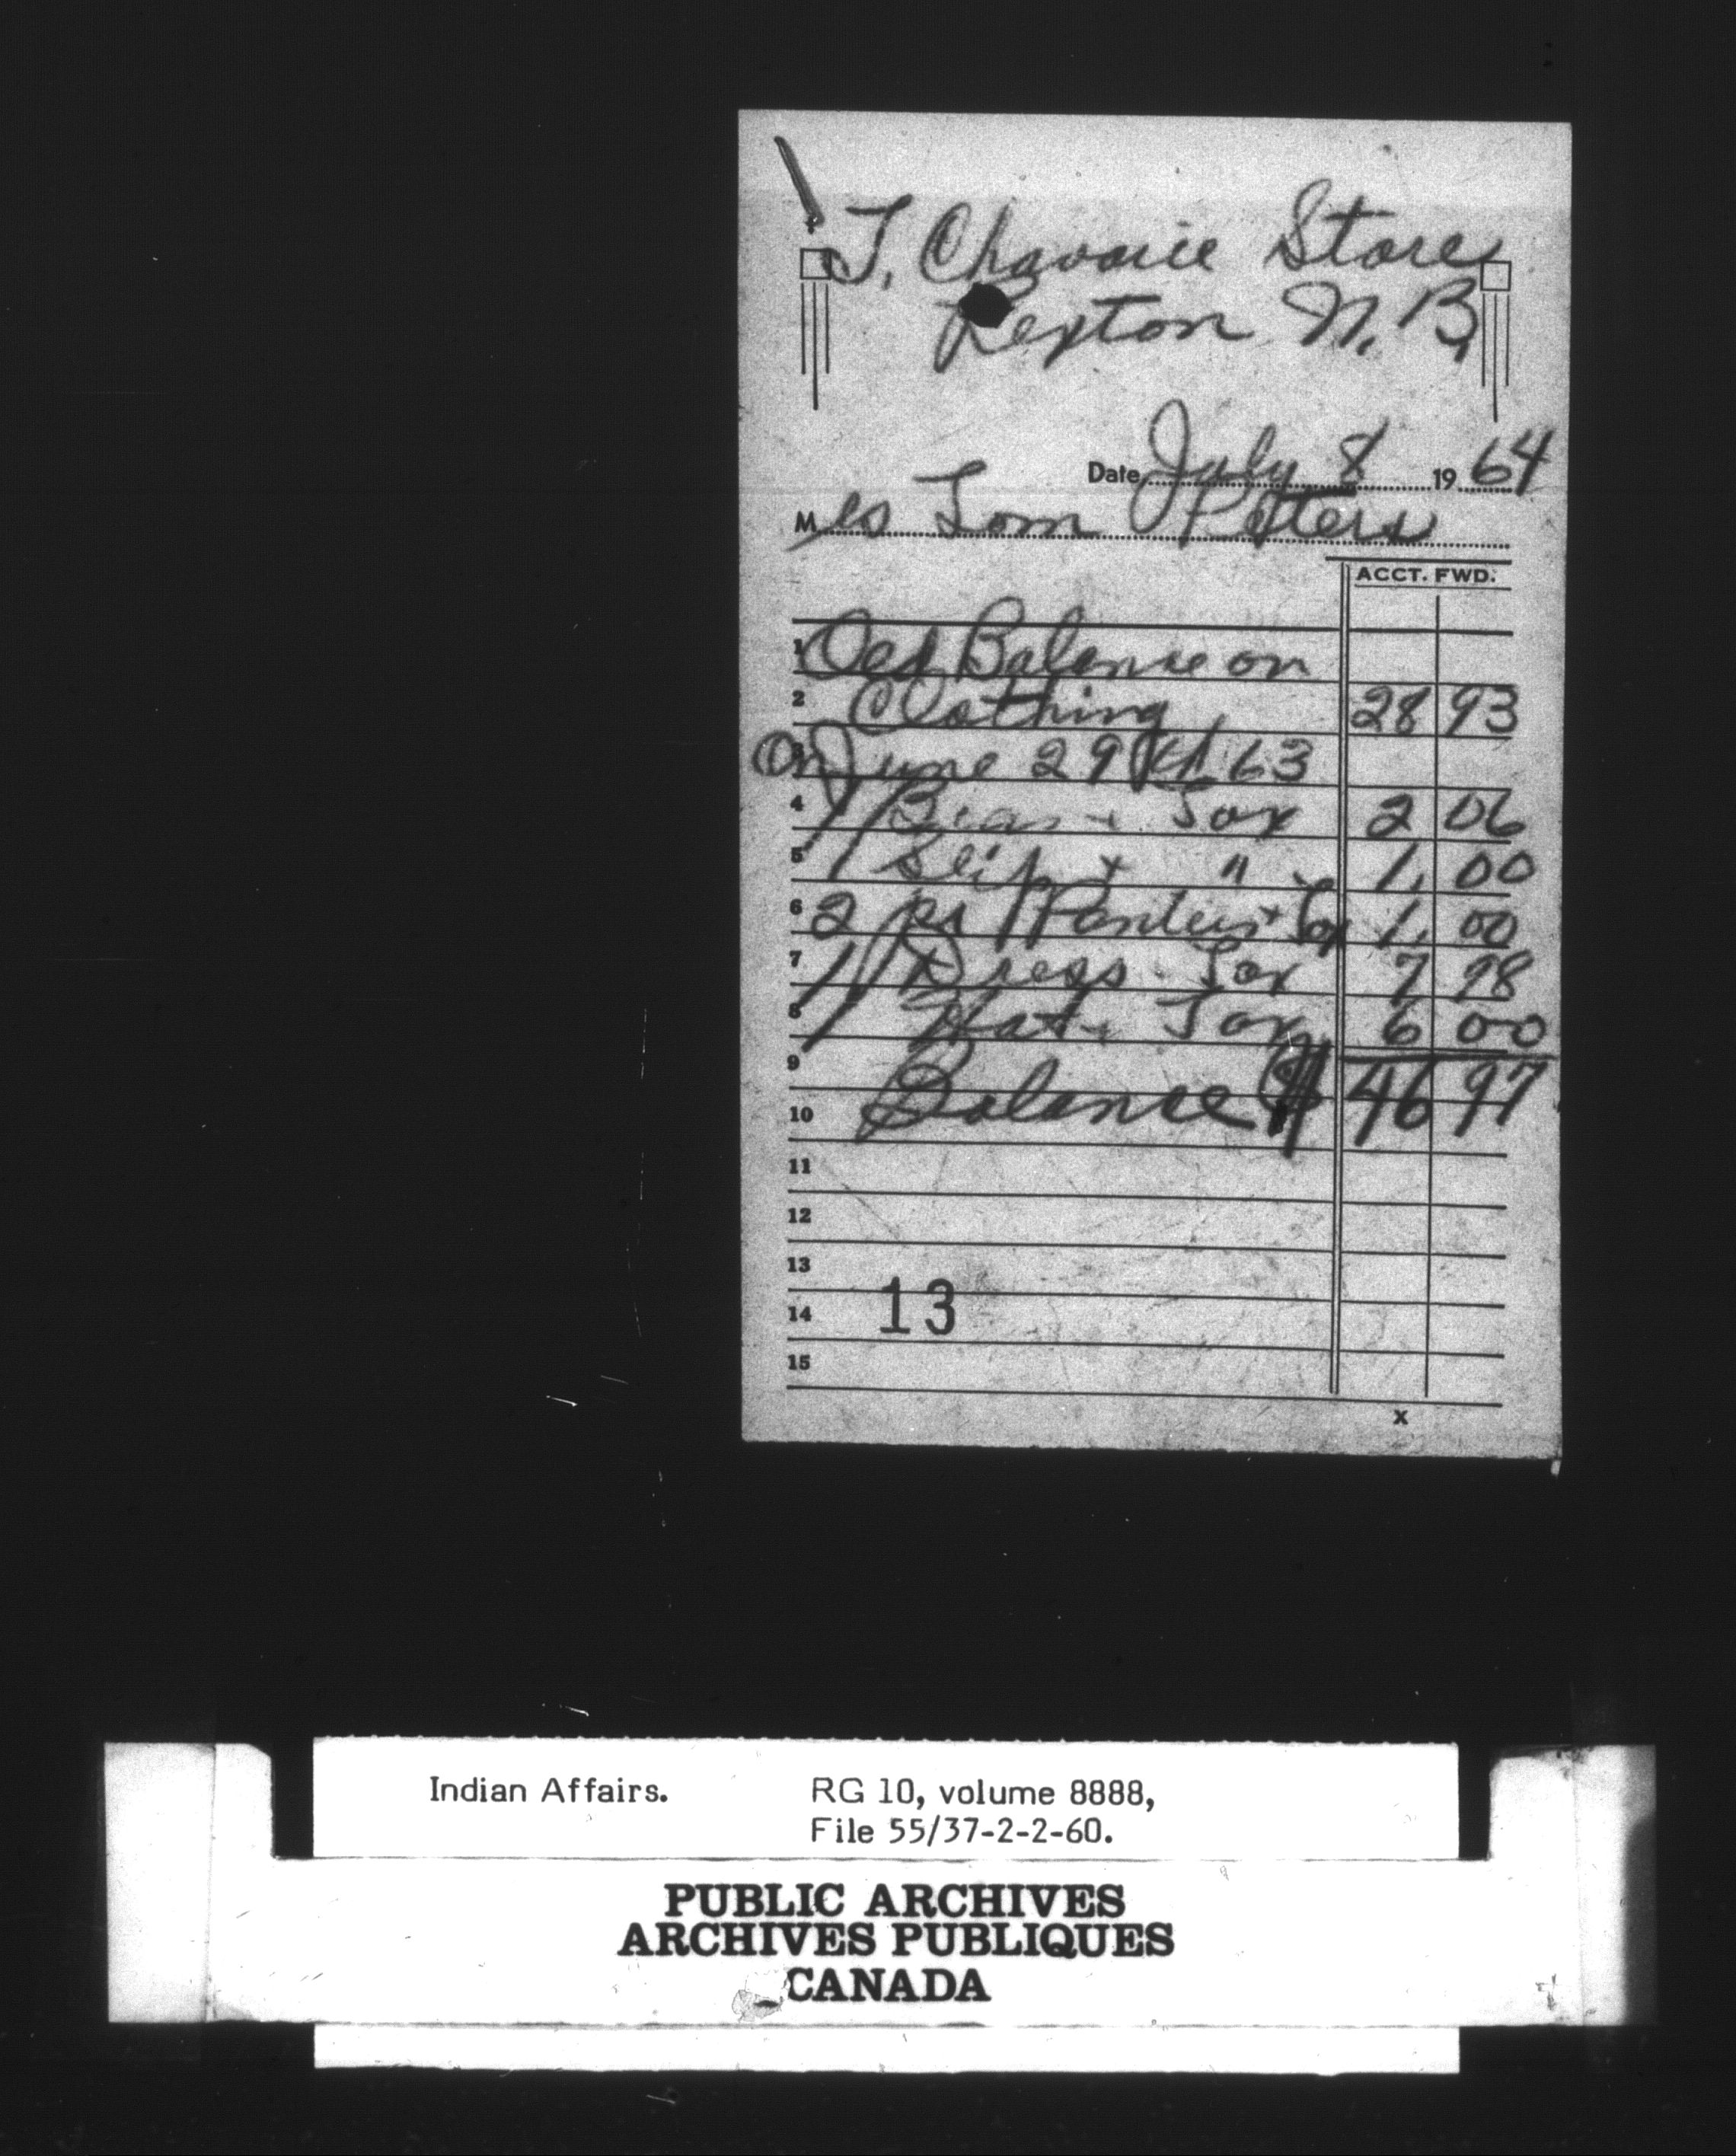 T. Chavarie Store
Rexton N.B.
Date July 8 1964
Mrs Tom Peters
ACCT. FWD.
1 Old Balance on
2 Clothing 28 93
3 On June 29th 63
4 1 Bras + Tax 2 06
5 1 Slip + " 1.00
6 2 pr Panties + Tax 1.00
7 1 Dress - Tax 7 98
8 1 Hat + Tax 6 00
9
10 Balance $ 46 97
11
12
13
14 13
15
x
Indian Affairs. RG 10, volume 8888,
File 55/37-2-2-60.
PUBLIC ARCHIVES
ARCHIVES PUBLIQUES
CANADA